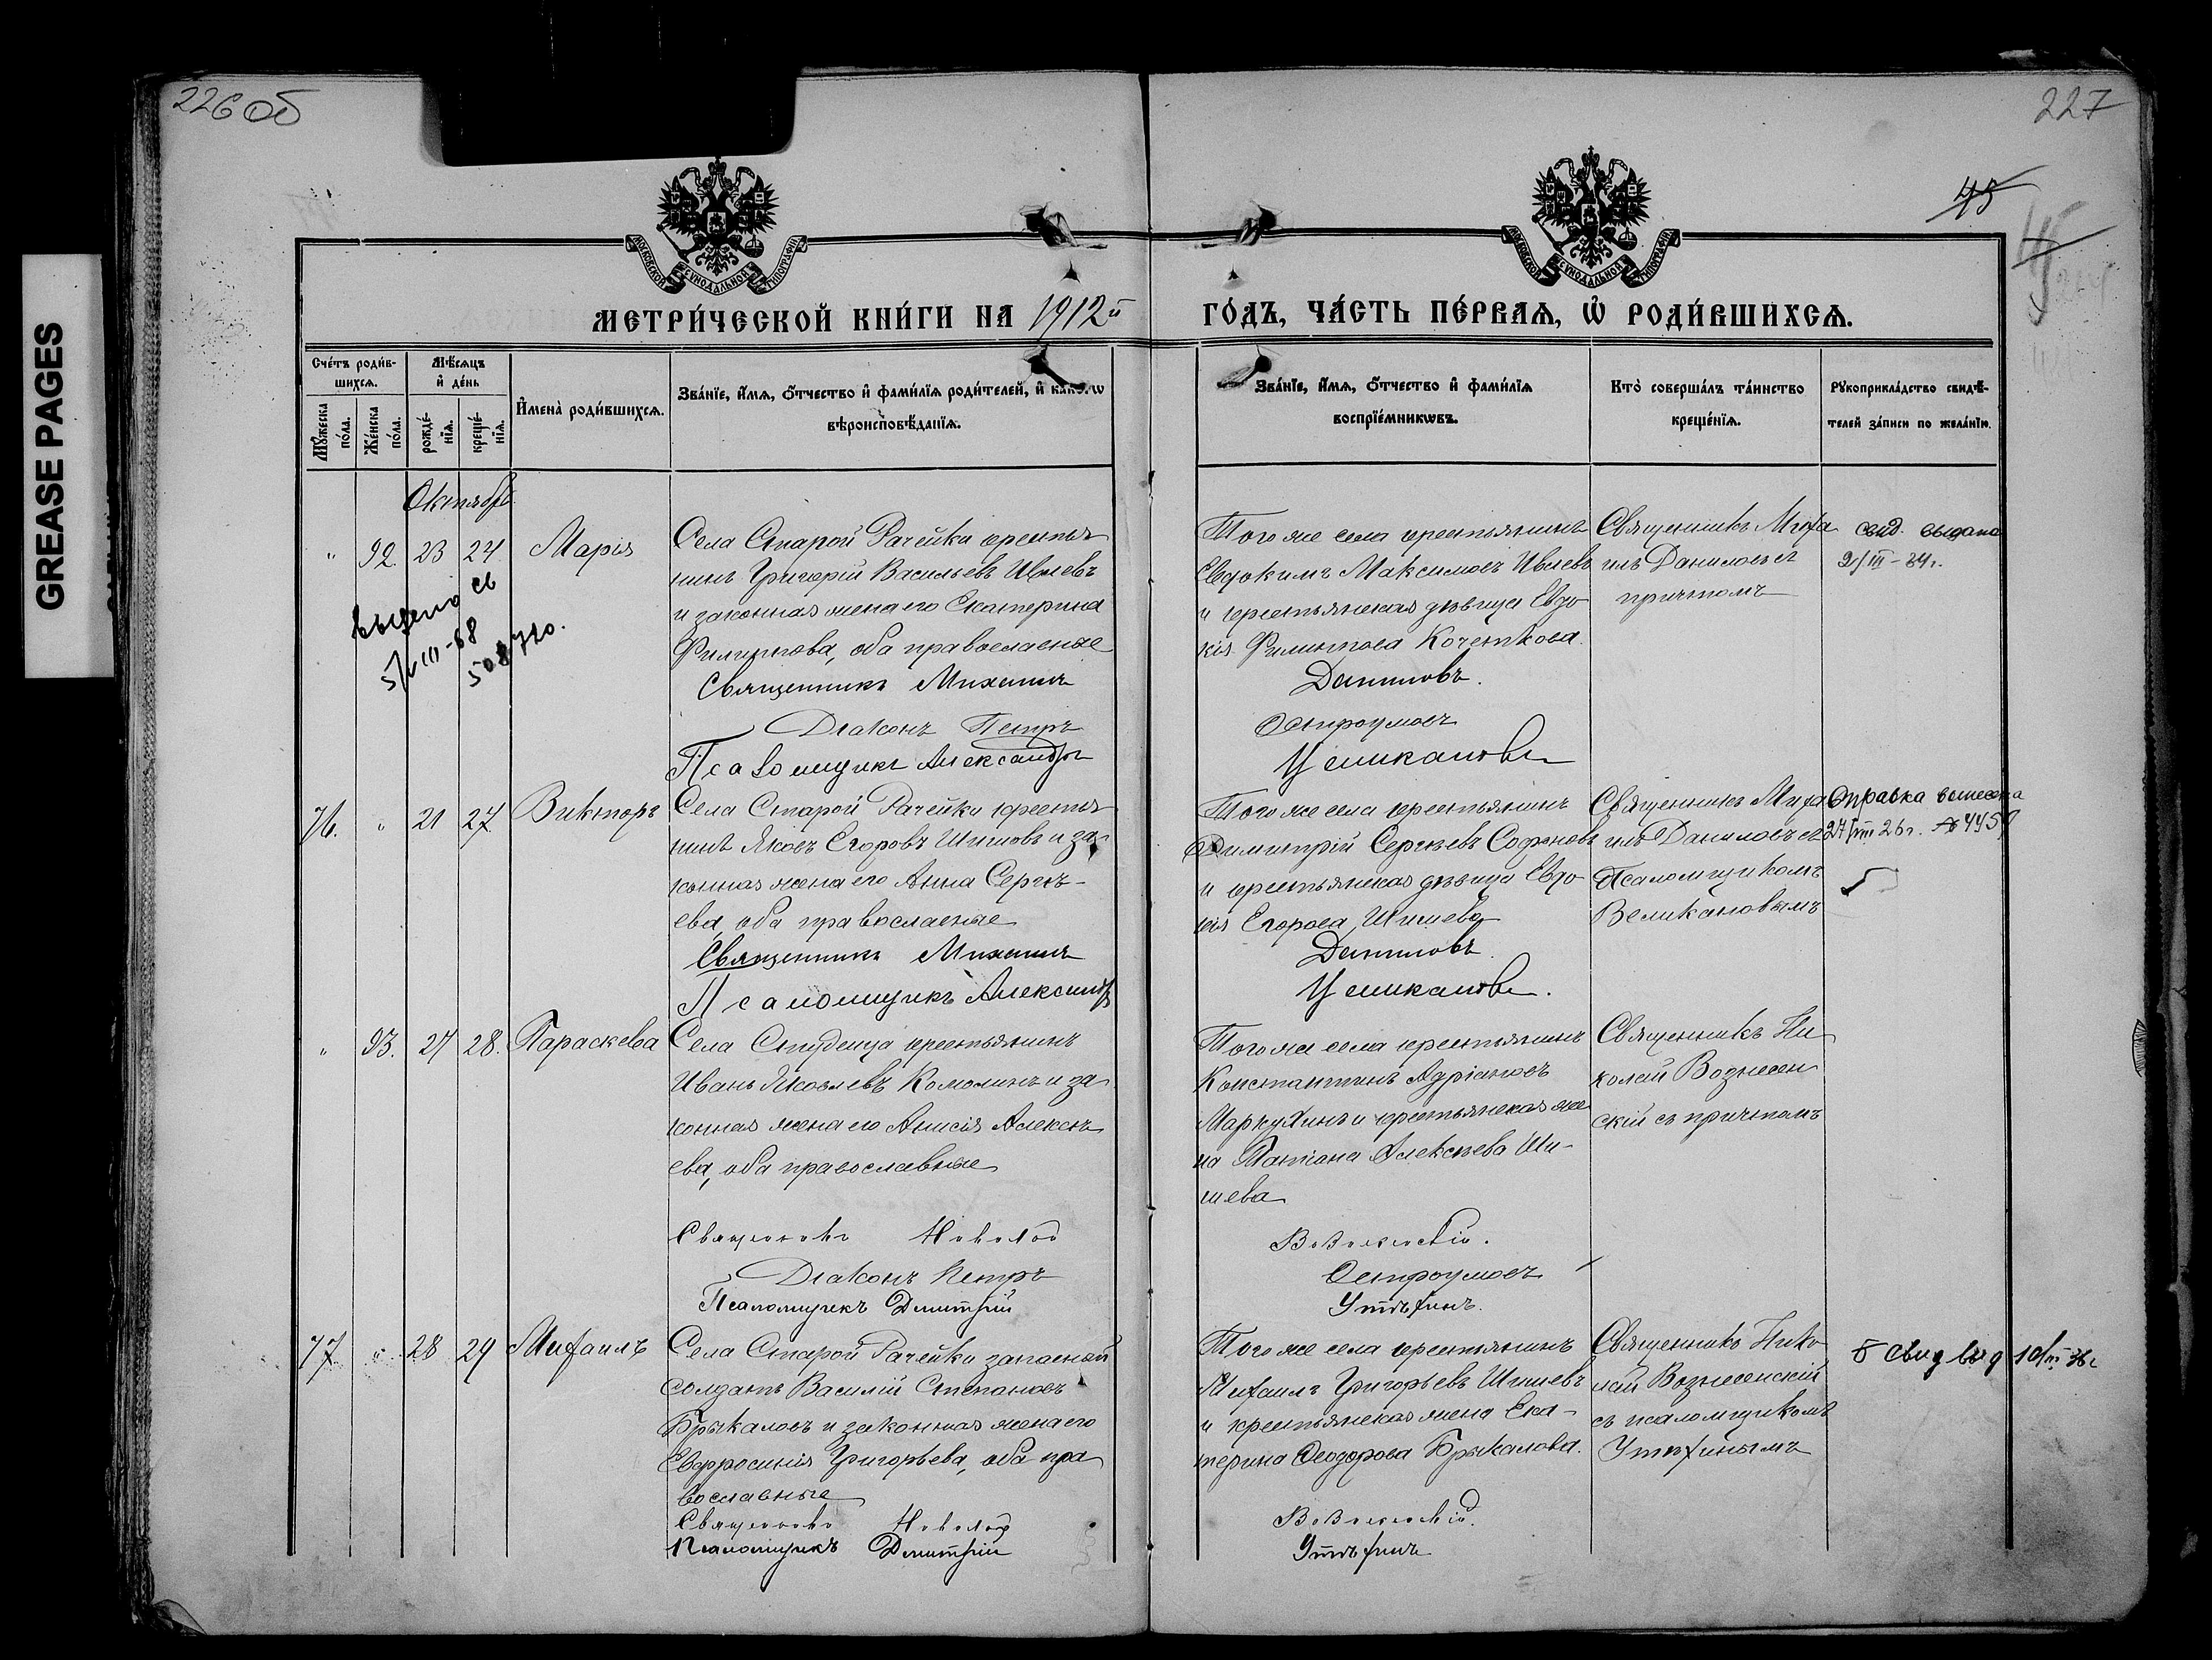 GREASE PAGES
226 об
227
45
МОСКОВСКОЙ СѴНОДАЛЬНОЙ ТИПОГРАФІИ
МОСКОВСКОЙ СѴНОДАЛЬНОЙ ТИПОГРАФІИ
МЕТРИ́ЧЕСКОЙ КНИ́ГИ НА 1912й
ГО́ДЪ, ЧА́СТЬ ПЕ́РВАѦ, Ѡ҆ РОДИ́ВШИХСѦ.
Сче́тъ роди́в-
шихсѧ.
Мꙋ́жеска
по́ла.
Же́нска
по́ла.
Мѣ́сѧцъ
и҆ де́нь
рожде́-
нїѧ.
креще́-
нїѧ.
И҆мена̀ роди́вшихсѧ.
Зва́нїе, и҆́мѧ, ѻ҆́тчество и҆ фами́лїѧ роди́телей, и҆ како́гѡ
вѣроисповѣ́данїѧ.
Зва́нїе, и҆́мѧ, ѻ҆́тчество и҆ фами́лїѧ
воспрїе́мникѡвъ.
Кто̀ соверша́лъ та́инство
креще́нїѧ.
Рꙋкоприкла́дство свидѣ́-
телей за́писи по жела́нїю.
Октябрь
" 92 23 24 Марія
Села Старой Рачейки крестья
нинъ Григорій Васильевъ Ивлевъ
и законная жена его Екатерина
Филиппова, оба православные
Священникъ Михаилъ
Діаконъ Петръ
Псаломщикъ Александръ
Того же села крестьянинъ
Евдокимъ Максимовъ Ивлевъ
и крестьянская дѣвица Евдо
кія Филиппова Кочеткова.
Даниловъ.
Остроумовъ
Великановъ
Священникъ Миха
илъ Даниловъ съ
причтомъ
свид. выдано
2/III-34г.
5/VIII-68
76. " 21 27 Викторъ
Села Старой Рачейки крестья
нинъ Яковъ Егоровъ Шишовъ и за-
конная жена его Анна Сергѣ-
ева, оба православные
Священникъ Михаилъ
Псаломщикъ Александръ
Того же села крестьянинъ
Димитрій Сергѣевъ Софоновъ
и крестьянская дѣвица Евдо
кія Егорова Шишева
Даниловъ.
Великановъ.
Священникъ Миха
илъ Даниловъ съ
Псаломщикомъ
Великановымъ
Справка
" 93. 27 28. Параскева
Села Студенца крестьянинъ
Иванъ Яковлевъ Комолинъ и за
конная жена его Анисія Алексѣ
ева, оба православные
Священникъ Николай
Діаконъ Петръ
Псаломщикъ Димитрій
Того же села крестьянинъ
Константинъ Адріановъ
Маркухинъ и крестьянская же
на Татіана Алексѣева Ши-
шева
Вознесенскій.
Остроумовъ
Утѣхинъ.
Священникъ Ни
колай Вознесен
скій съ причтомъ
77. " 28 29 Михаилъ
Села Старой Рачейки запасный
солдатъ Василій Степановъ
Брыкаловъ и законная жена его
Евфросинія Григорьева, оба пра
вославные
Священникъ Николай
Псаломщикъ Димитрій
Того же села крестьянинъ
Михаилъ Григорьевъ Шишевъ
и крестьянская жена Ека-
терина Ѳеодорова Брыкалова.
Вознесенскій.
Утѣхинъ
Священникъ Нико
лай Вознесенскій
съ псаломщикомъ
Утѣхинымъ